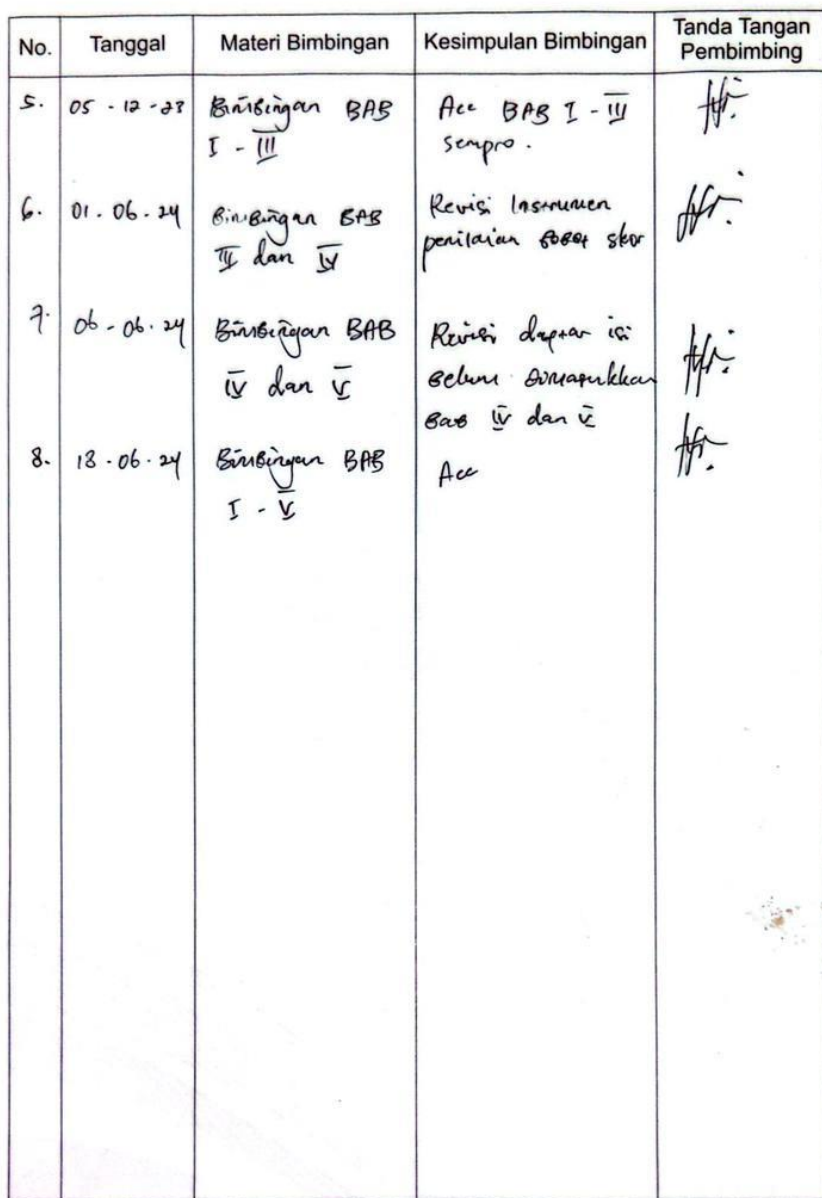 No. Tanggal Materi Bimbingan Kesimpulan Bimbingan Tanda Tangan
Pembimbing
5. 05 - 12 - 23 Bimbingan BAB Acc BAB I - III
I - III sempro.
6. 01 . 06 . 24 Bimbingan BAB Revisi Instrumen
III dan IV penilaian bobot skor
7. 06 - 06 . 24 Bimbingan BAB Revisi daptar isi
IV dan V belum dimasukkan
Bab IV dan V
8. 18 . 06 . 24 Bimbingan BAB Acc
I - V